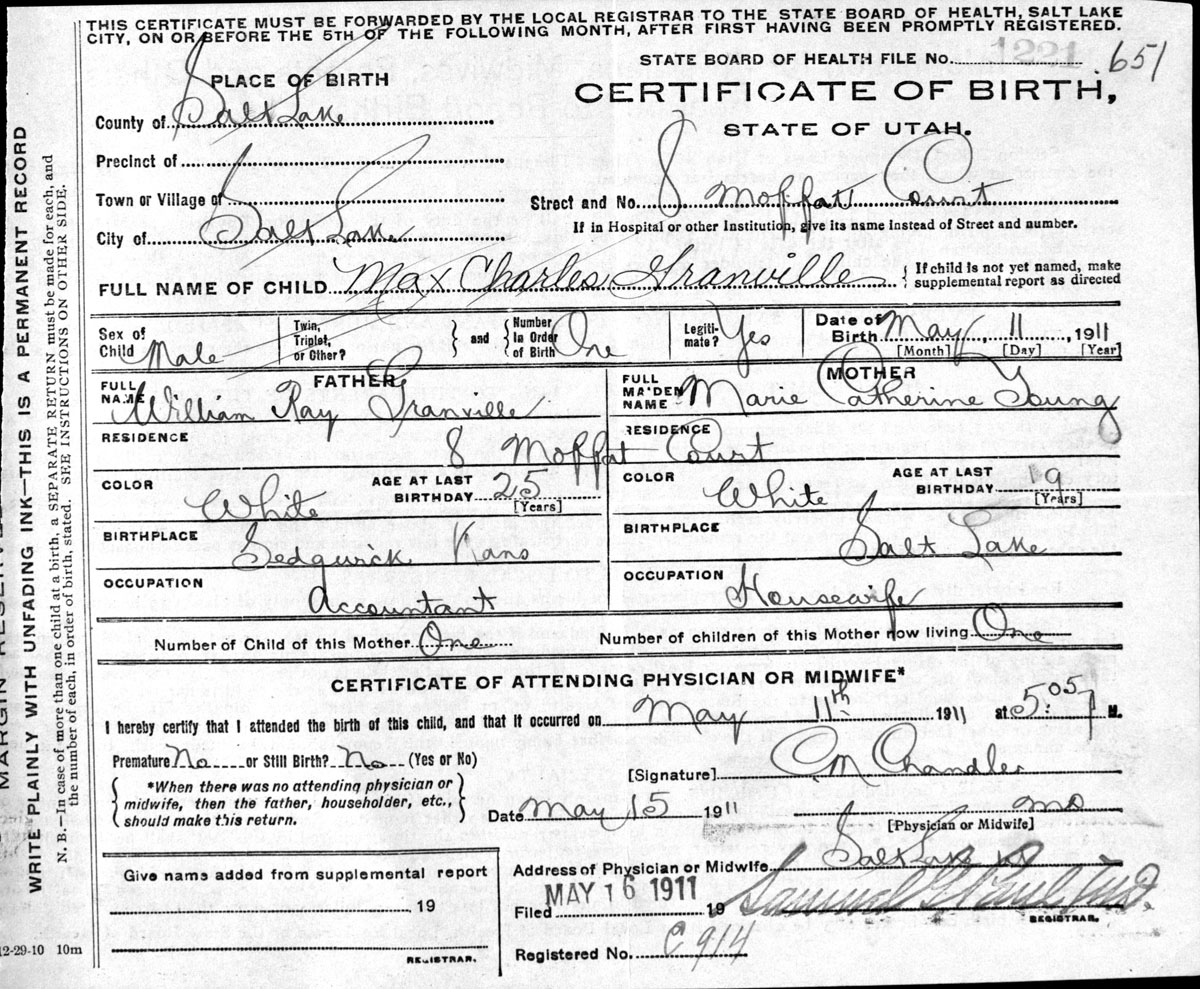 THIS CERTIFICATE MUST BE FORWARDED BY THE LOCAL REGISTRAR TO THE STATE BOARD OF HEALTH, SALT LAKE
CITY, ON OR BEFORE THE 5TH OF THE FOLLOWING MONTH, AFTER FIRST HAVING BEEN PROMPTLY REGISTERED.
STATE BOARD OF HEALTH FILE No. 1221 651
PLACE OF BIRTH
CERTIFICATE OF BIRTH,
STATE OF UTAH.
County of Salt Lake
Precinct of
Town or Village of
Street and No. 8 Moffat Court
If in Hospital or other Institution, give its name instead of Street and number.
City of Salt Lake
FULL NAME OF CHILD Max Charles Granville { If child is not yet named, make
supplemental report as directed
Sex of Child Male
Twin, Triplet, or Other?
and
Number In Order of Birth One
Legiti-mate? Yes
Date of Birth May 11, 1911
[Month] [Day] [Year]
FATHER
FULL NAME William Ray Granville
MOTHER
FULL MAIDEN NAME Marie Catherine Young
RESIDENCE
RESIDENCE
8 Moffat Court
COLOR White
AGE AT LAST BIRTHDAY 25
[Years]
COLOR White
AGE AT LAST BIRTHDAY 19
[Years]
BIRTHPLACE Sedgwick Kans
BIRTHPLACE Salt Lake
OCCUPATION Accountant
OCCUPATION Housewife
Number of Child of this Mother One
Number of children of this Mother now living One
CERTIFICATE OF ATTENDING PHYSICIAN OR MIDWIFE*
I hereby certify that I attended the birth of this child, and that it occurred on May 11th 1911 at 5:05 M.
Premature No or Still Birth? No (Yes or No)
*When there was no attending physician or
midwife, then the father, householder, etc.,
should make this return.
[Signature] CM Chandler
Date May 15 1911
MD
[Physician or Midwife]
Address of Physician or Midwife Salt Lake
Give name added from supplemental report
19
REGISTRAR.
Filed MAY 16 1911 19
Samuel G Paul
REGISTRAR.
Registered No. C 914
12-29-10 10m
WRITE PLAINLY WITH UNFADING INK—THIS IS A PERMANENT RECORD
N. B.—In case of more than one child at a birth, a SEPARATE RETURN must be made for each, and
the number of each, in order of birth, stated. SEE INSTRUCTIONS ON OTHER SIDE.